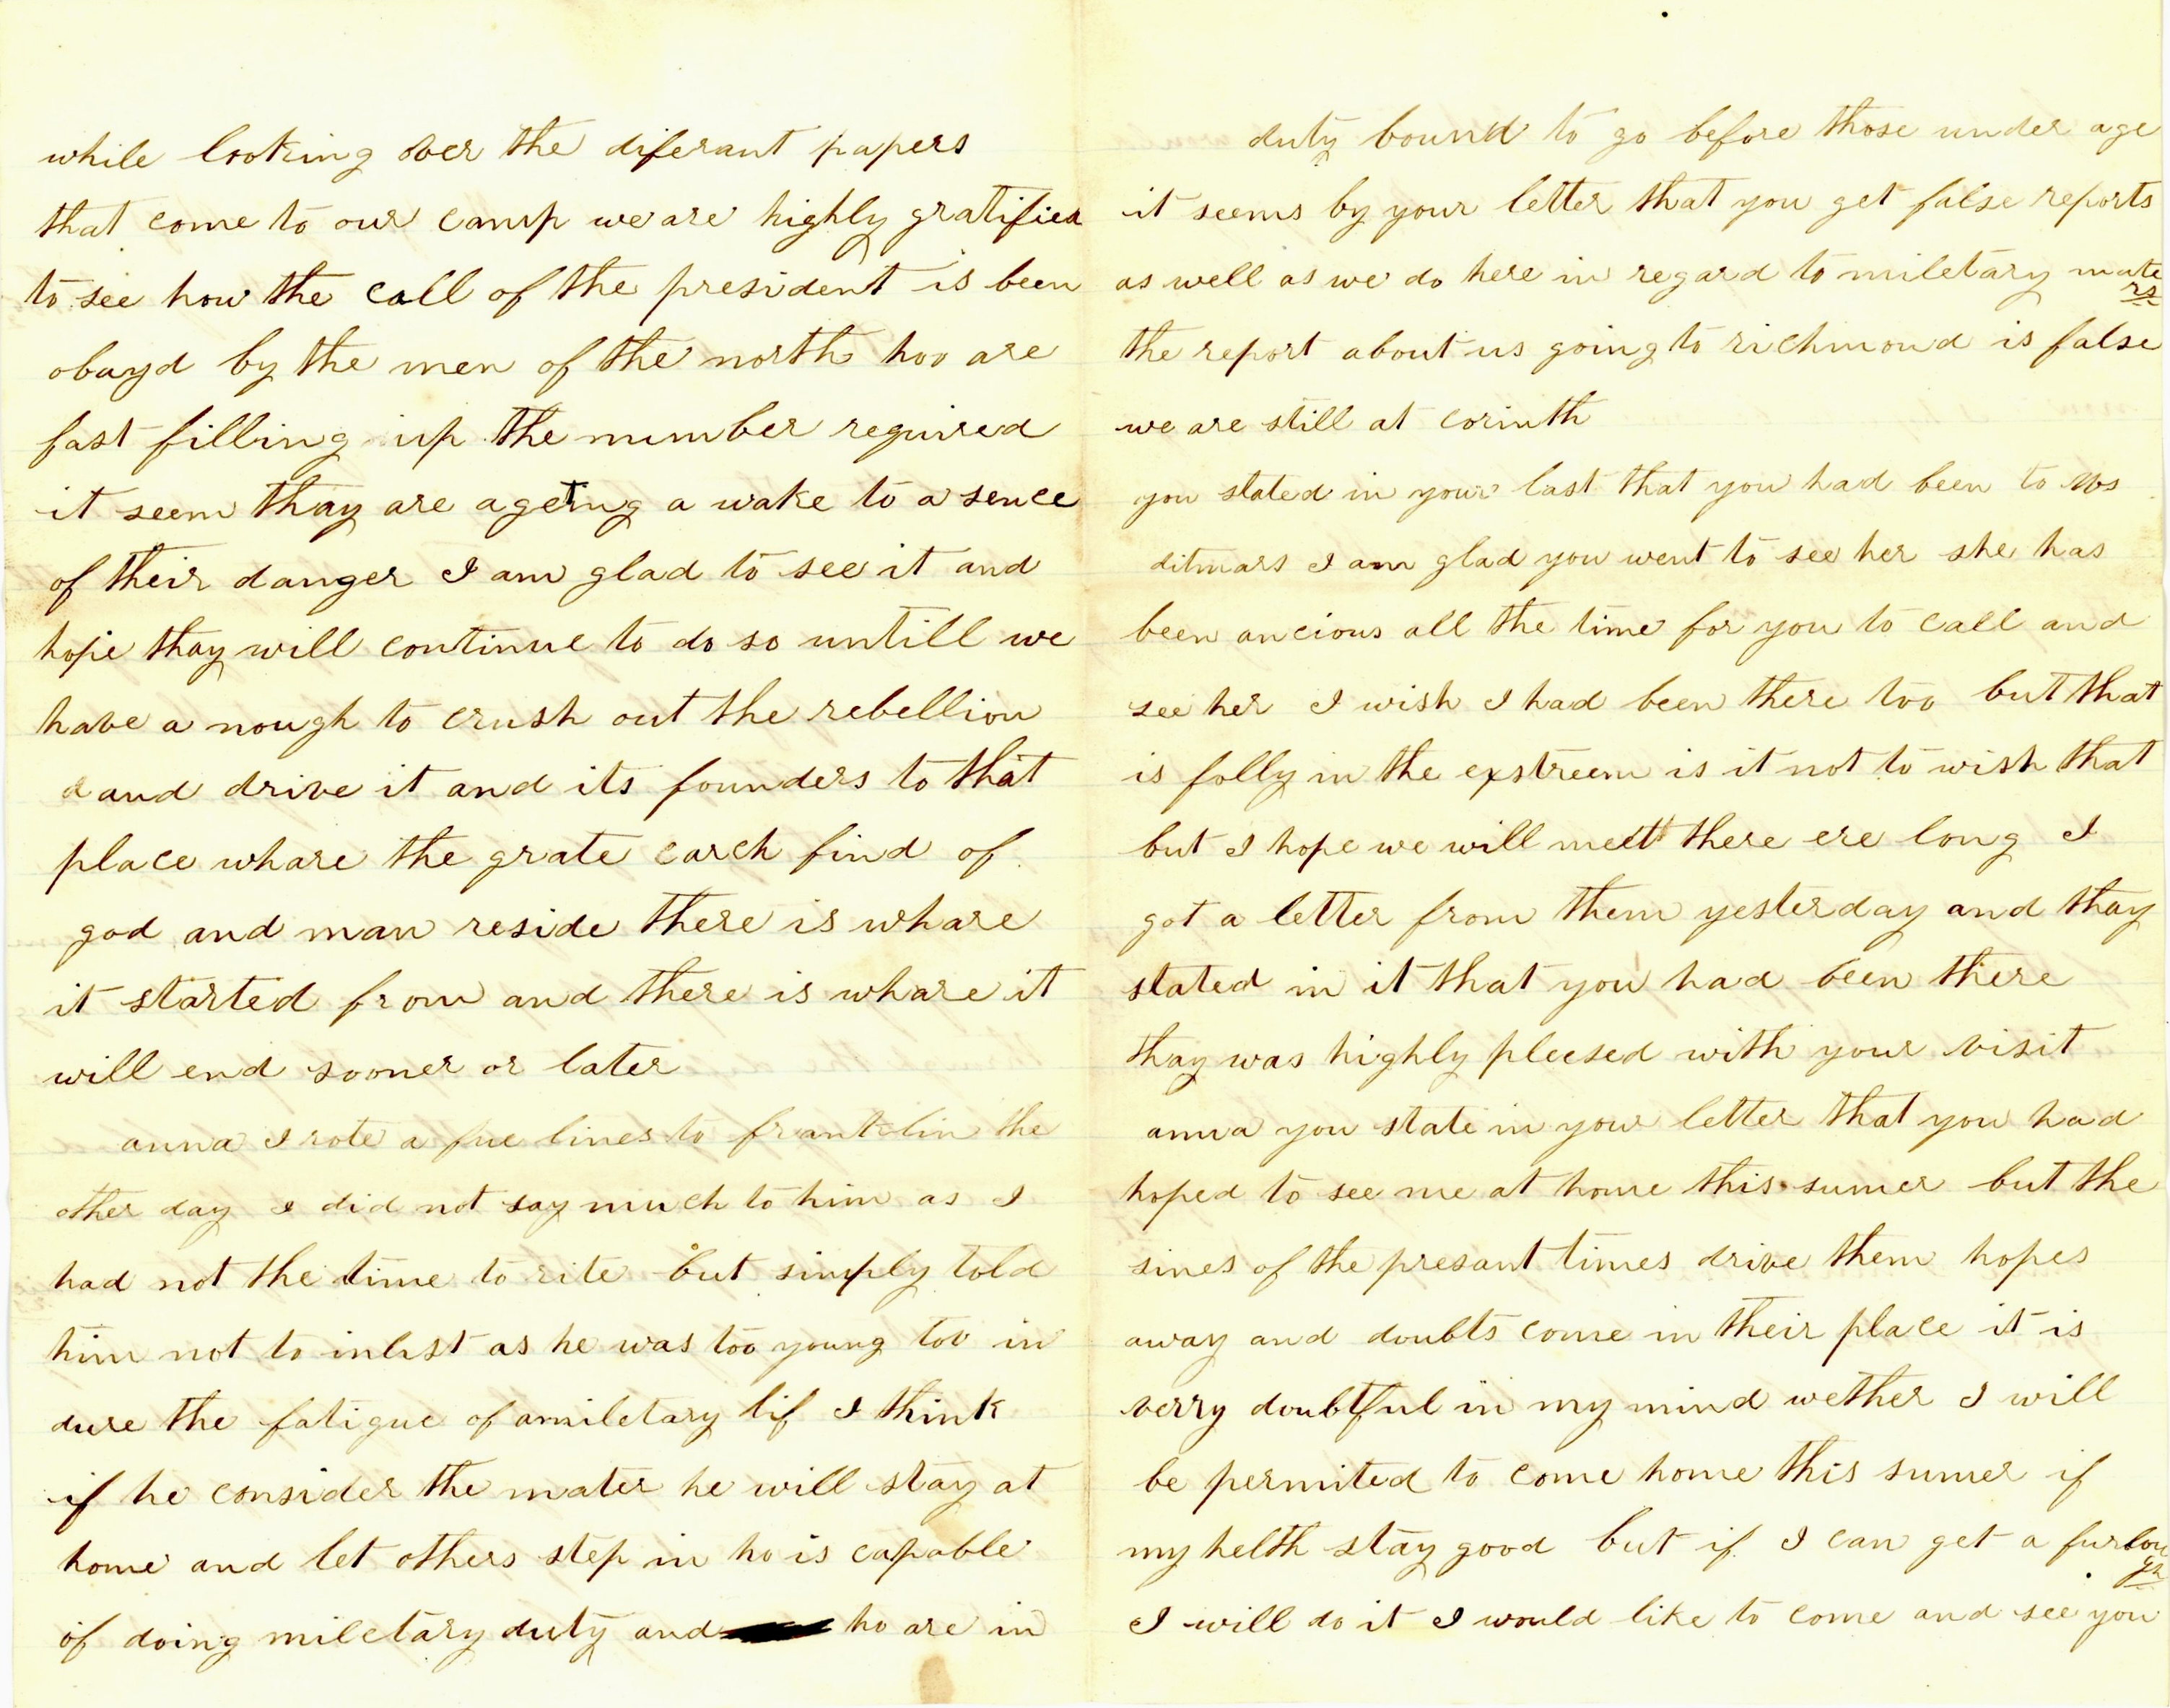 while looking over the diferant papers
that come to our camp we are highly gratified
to see how the call of the president is been
obayd by the men of the north hoo are
fast filling up the number required
it seem thay are ageting a wake to a sence
of their danger I am glad to see it and
hope thay will continue to do so untill we
have a nough to crush out the rebellion
a and drive it and its founders to that
place whare the grate earch find of
god and man reside there is whare
it started from and there is whare it
will end sooner or later
anna I rote a fue lines to franklin the
other day I did not say much to him as I
had not the time to rite but simply told
him not to inlist as he was too young too in
dure the fatigue of a miletary lif I think
if he consider the mater he will stay at
home and let others step in ho is capable
of doing miletary duty and ho are in
duty bound to go before those under age
it seems by your letter that you get false reports
as well as we do here in regard to miletary maters
the report about us going to richmond is false
we are still at corinth
you stated in your last that you had been to
ditmars I am glad you went to see her she has
been ancious all the time for you to call and
see her I wish I had been there too but that
is folly in the exstreem is it not to wish that
but I hope we will meett there ere long I
got a letter from them yesterday and thay
stated in it that you had been there
thay was highly pleesed with your visit
anna you state in your letter that you had
hoped to see me at home this sumer but the
sines of the presant times drive them hopes
away and doubts come in their place it is
verry doubtful in my mind wether I will
be permited to come home this sumer if
my helth stay good but if I can get a furlough
I will do it I would like to come and see you